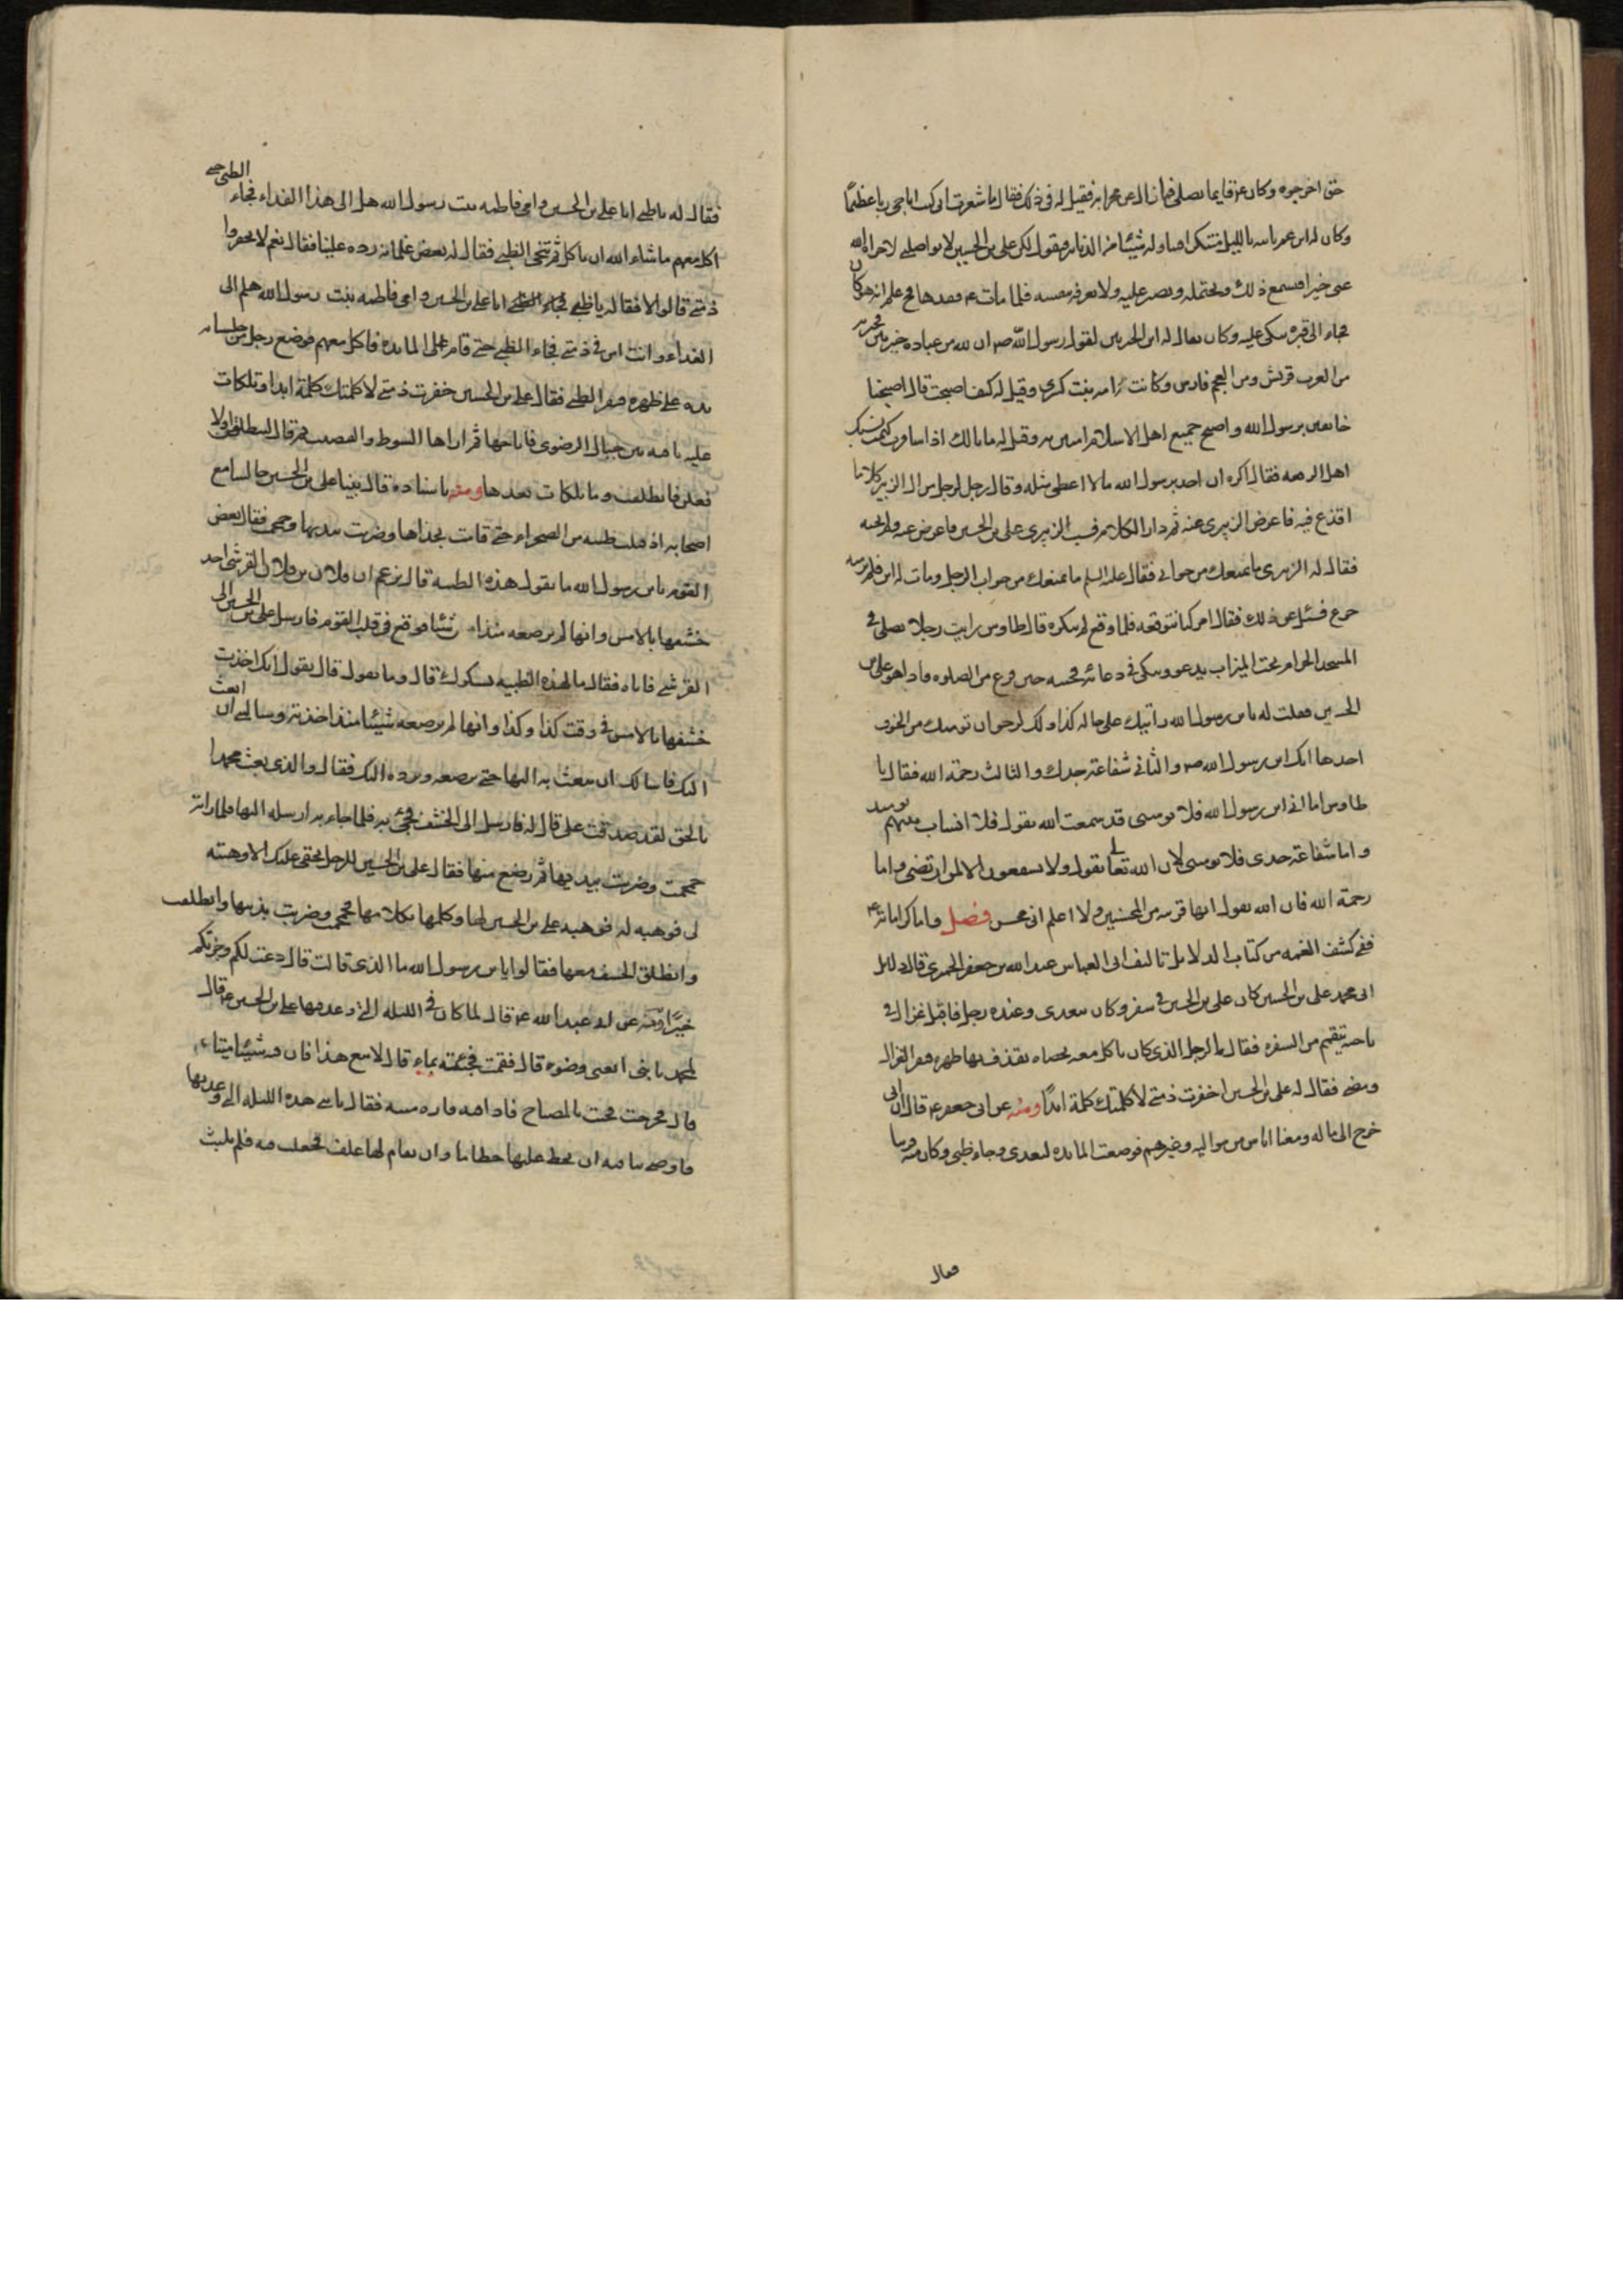 حتى اخرجوه وكان ع قايما يصلى فما زال عن محرابه فقيل له فى ذلك فقال ما شعرت انى كنت اناجى ربا عظيمًا
وكان له ابن عم ياتيه بالليل متنكرا فيناوله شيئا من الدنانير فيقول لكن على بن الحسين لا يواصلنى لا جزاه الله
عنى خيرا فيسمع ذلك ويحتمله ويصبر عليه ولا يعرفه بنفسه فلما مات ع فقدها فح علم انه هو كان
فجاء الى قبره يبكى عليه وكان يقال له ابن الخيرتين لقول رسول الله ص ان لله من عباده خيرتين فخيرته
من العرب قريش ومن العجم فارس وكانت امه بنت كسرى وقيل له كيف اصبحت قال اصبحنا
خائفين برسول الله واصبح جميع اهل الاسلام امنين به وقيل له ما بالك اذا سافرت كتمت نسبك
اهل الرفقه فقال اكره ان اخذ برسول الله ما لا اعطى مثله وقال رجل لرجل من ال الزبير كلاما
اقذع فيه فاعرض الزبيرى عنه ثم دار الكلام فسب الزبيرى على بن الحسين فاعرض عنه ولم يجبه
فقال له الزبيرى ما يمنعك من جوابى فقال عليه السلم ما يمنعك من جواب الرجل ومات له ابن فلم ير منه
جزع فسئل عن ذلك فقال امر كنا نتوقعه فلما وقع لم ننكره قال طاوس رايت رجلا يصلى فى
المسجد الحرام تحت الميزاب يدعو ويبكى فى دعائه فجئته حين فرغ من الصلوه فاذا هو على بن
الحسين فقلت له يا بن رسول الله رايتك على حاله كذا ولك ارجو ان تومنك من الخوف
احدها انك ابن رسول الله ص والثانى شفاعة جدك والثالث رحمة الله فقال يا
طاوس اما انى ابن رسول الله فلا تومننى قد سمعت الله يقول فلا انساب بينهم يومئذ
واما شفاعة جدى فلا تومننى لان الله تعالى يقول ولا يشفعون الا لمن ارتضى واما
رحمة الله فان الله يقول انها قريبه من المحسنين ولا اعلم انى محسن فصل واما كراماته ع
ففى كشف الغمه من كتاب الدلايل تاليف ابى العباس عبد الله بن جعفر الحميرى قال دلايل
ابى محمد على بن الحسين كان على بن الحسين فى سفر وكان يتغدى وعنده رجل فاقبل غزال فى
ناحيه يتقمم من السفره فقال الرجل الذى كان ياكل معه بحصاه يقذف بها ظهره فنفر الغزال
ومضى فقال له على بن الحسين اخفرت ذمتى لا كلمتك كلمة ابدًا ومنه عن ابى جعفر ع قال ان ابى
خرج الى ماله ومعنا اناس من مواليه وغيرهم فوضعت المايده ليتغدى وجاء ظبى وكان منه قريبا
فقال
فقال له يا ظبى انا على بن الحسين وامى فاطمه بنت رسول الله هلم الى هذا الغداء فجاء الظبى حتى
اكل معهم ما شاء الله ان ياكل ثم تنحى الظبى فقال له بعض غلمانه رده علينا فقال نعم لا تخفروا
ذمتى قالوا لا فقال يا ظبى انا على بن الحسين وامى فاطمه بنت رسول الله هلم الى
الغداء وانت امن فى ذمتى فجاء الظبى حتى قام على المايده فاكل معهم فوضع رجل من جلسائه
يده على ظهره فنفر الظبى فقال على بن الحسين خفرت ذمتى لا كلمتك كلمة ابدا وتلكات
عليه ناقته بين جبال الرضوى فاناخها ثم اراها السوط والقضيب ثم قال لتنطلقن او لا
فعلن فانطلقت وما تلكات بعدها ومنه باسناده قال بينا على بن الحسين جالسا مع
اصحابه اذ اقبلت ظبيه من الصحراء حتى قامت بحذاها وضربت بيديها وحمحمت فقال بعض
القوم يا بن رسول الله ما تقول هذه الظبيه قال تزعم ان فلان بن فلان القرشى اخذ
خشفها بالامس وانها لم ترضعه منذ امس شيئا فوقع فى قلب القوم فارسل على بن الحسين الى
القرشى فاتاه فقال ما لهذه الظبيه تشكوك قال وما تقول قال تقول انك اخذت
خشفها بالامس فى وقت كذا وكذا وانها لم ترضعه شيئا منذ اخذته وسالتنى ان ابعث
اليك فاسالك ان تبعث به اليها حتى ترضعه وترده اليك فقال والذى بعث محمدا
بالحق لقد صدقت على قال له فارسل الى الخشف فجئ به فلما جاء به ارسله اليها فلما راته
حمحمت وضربت بيديها ثم رضع منها فقال على بن الحسين للرجل بحقى عليك الا وهبته
لى فوهبه له فوهبه على بن الحسين لها وكلمها بكلامها فحمحمت وضربت بذنبها وانطلقت
وانطلق الخشف معها فقالوا يا بن رسول الله ما الذى قالت قال دعت لكم وجزتكم
خيرًا ومنه عن ابى عبد الله ع قال لما كان فى الليله التى وعد فيها على بن الحسين ع قال
لمحمد يا بنى ابغنى وضوءا قال فقمت فجئته بماء قال لا تبغ هذا فان فيه شيئا ميتا
قال فخرجت فجئت بالمصباح فاذا فيه فاره ميته فقال يا بنى هذه الليله التى وعدتها
فاوصى بناقته ان يحظر عليها حظارا وان يقام لها علف فجعلت فيه فلم يلبث